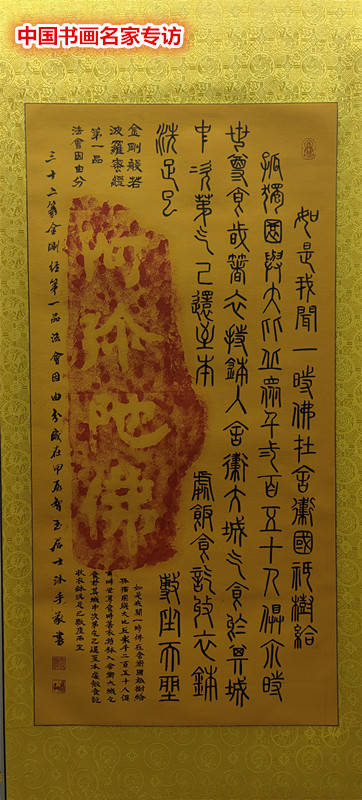 中国书画名家专访
如是我聞一時佛在舍衛國祇樹給
孤獨園與大比丘眾千二百五十人俱尒時
世尊食時著衣持鉢入舍衛大城乞食於其城
中次第乞已還至本處飯食訖收衣鉢
洗足已敷座而坐
金剛般若
波羅蜜經
第一品
法會因由分
阿弥陀佛
如是我聞一時佛在舍衛國祇樹給
孤獨園與大比丘眾千二百五十人俱
爾時世尊食時著衣持鉢入舍衛大城乞
食於其城中次第乞已還至本處飯食訖
收衣鉢洗足已敷座而坐
三十二篆金剛經第一品法會因由分歲在甲辰玉居士沐手篆書